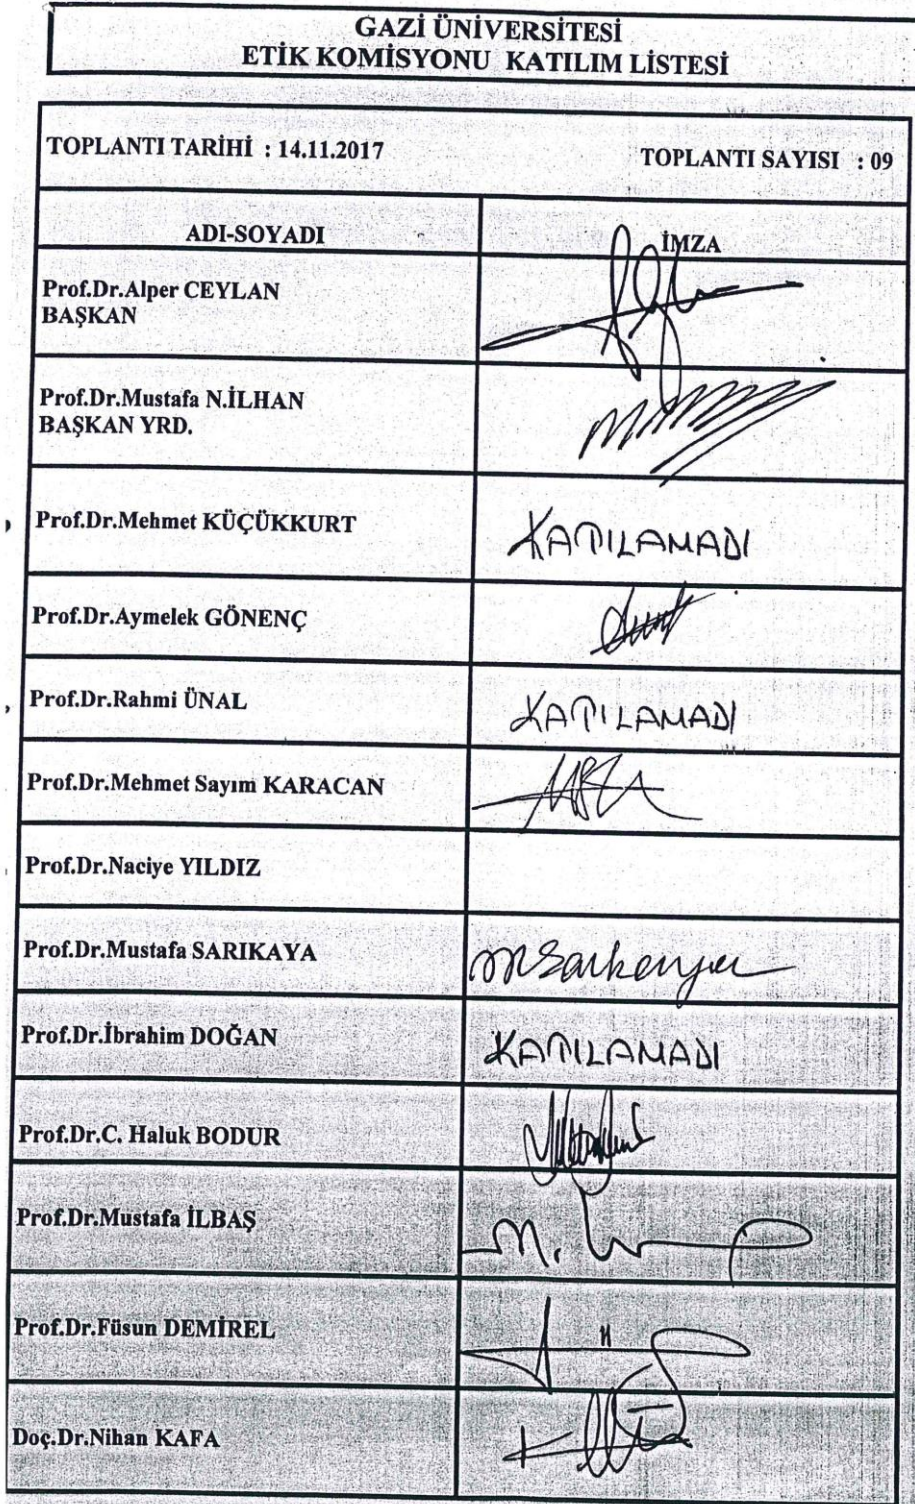 GAZİ ÜNİVERSİTESİ
ETİK KOMİSYONU KATILIM LİSTESİ
TOPLANTI TARİHİ : 14.11.2017 TOPLANTI SAYISI : 09
ADI-SOYADI İMZA
Prof.Dr.Alper CEYLAN
BAŞKAN
Prof.Dr.Mustafa N.İLHAN
BAŞKAN YRD.
Prof.Dr.Mehmet KÜÇÜKKURT KATILAMADI
Prof.Dr.Aymelek GÖNENÇ
Prof.Dr.Rahmi ÜNAL KATILAMADI
Prof.Dr.Mehmet Sayım KARACAN
Prof.Dr.Naciye YILDIZ
Prof.Dr.Mustafa SARIKAYA
Prof.Dr.İbrahim DOĞAN KATILAMADI
Prof.Dr.C. Haluk BODUR
Prof.Dr.Mustafa İLBAŞ
Prof.Dr.Füsun DEMİREL
Doç.Dr.Nihan KAFA